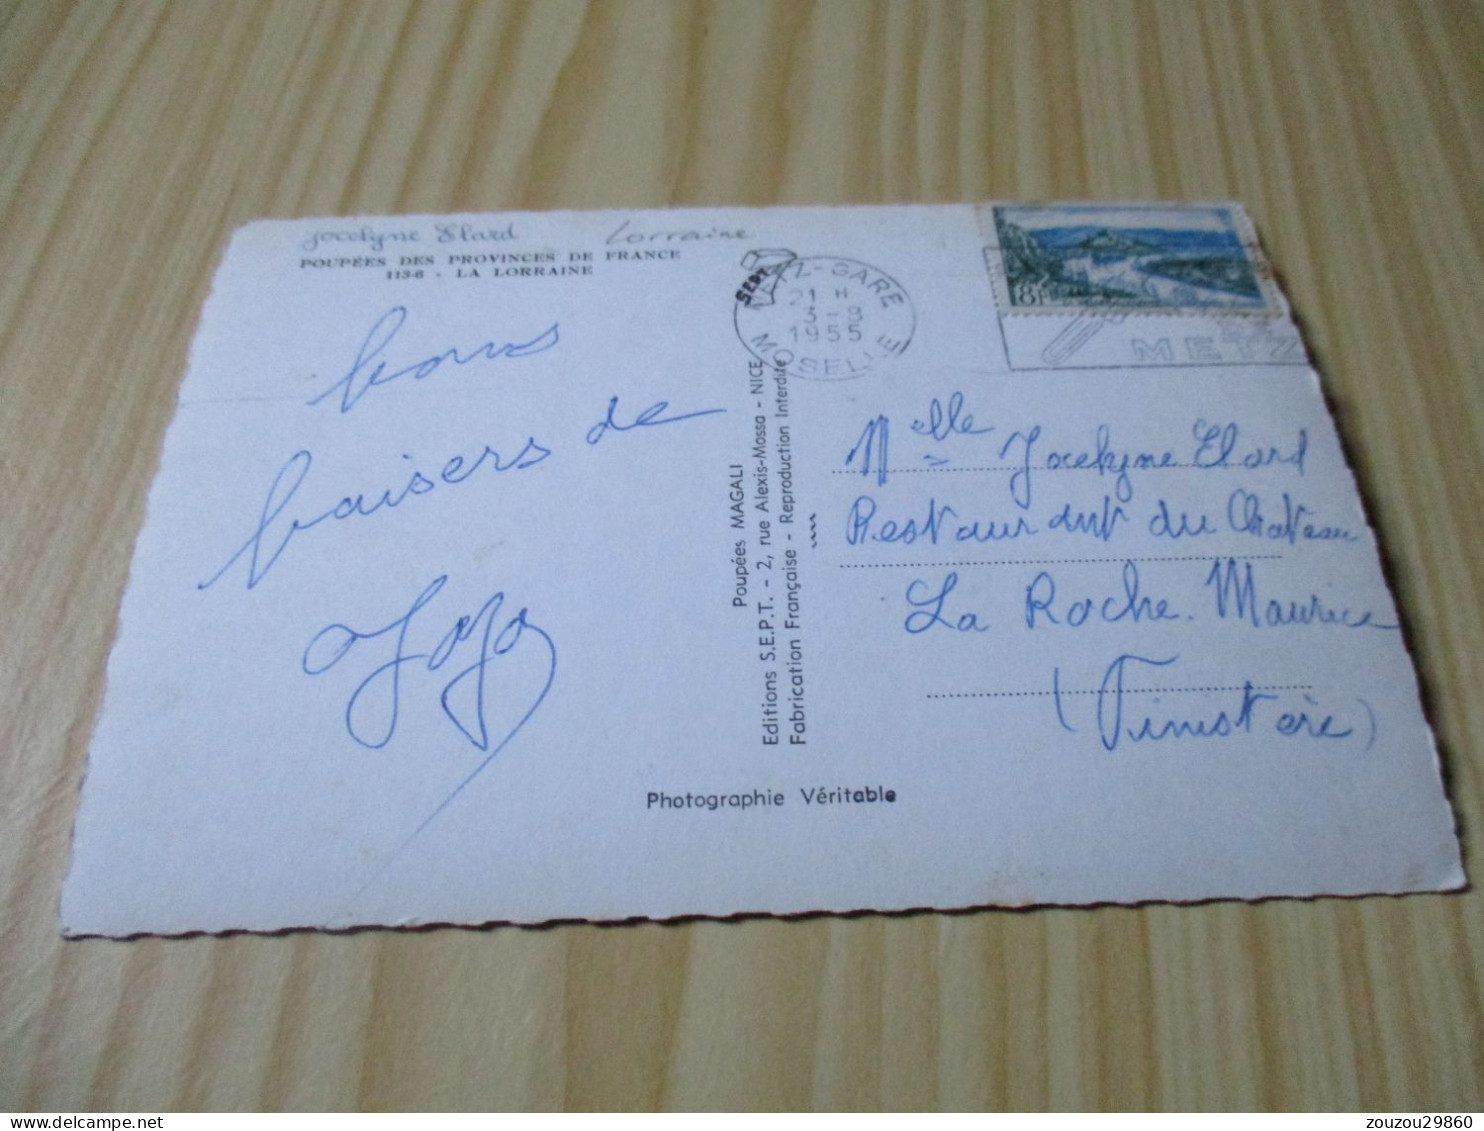 Jocelyne Elard Lorraine
POUPÉES DES PROVINCES DE FRANCE
113-6 - LA LORRAINE
bons
baisers de
Jojo
SEPT
METZ-GARE
21 H
1955
MOSELLE
8F
METZ
Poupées MAGALI
Editions S.E.P.T. - 2, rue Alexis-Mossa - NICE
Fabrication Française - Reproduction Interdite
Melle Jocelyne Elard
Restaurant du Château
La Roche-Maurice
(Finistère)
Photographie Véritable
zouzou29860